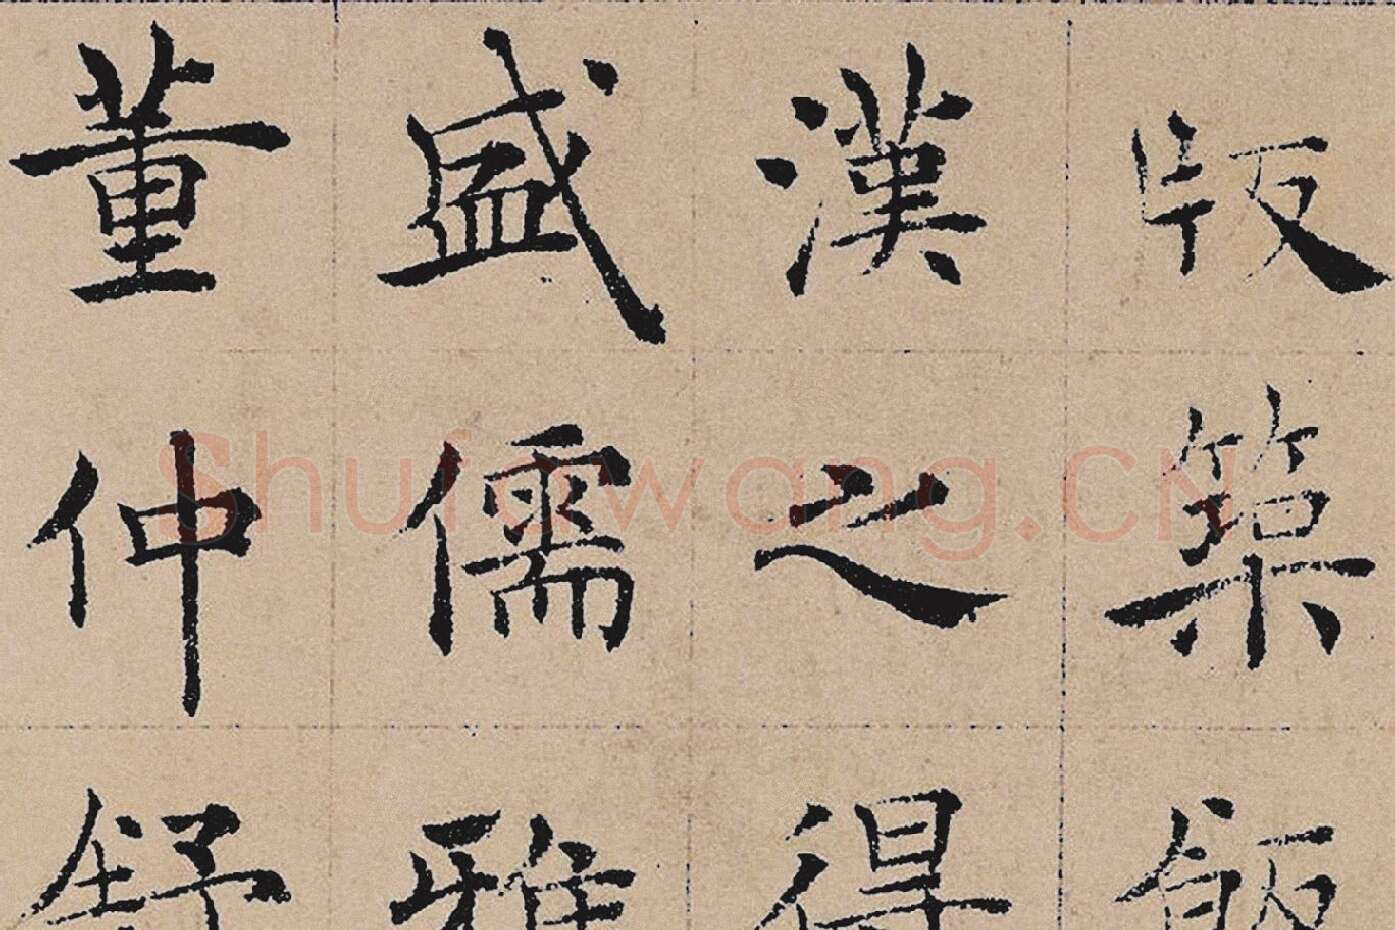 版築飯
漢之得
盛儒雅
董仲舒
Shufawang.CN